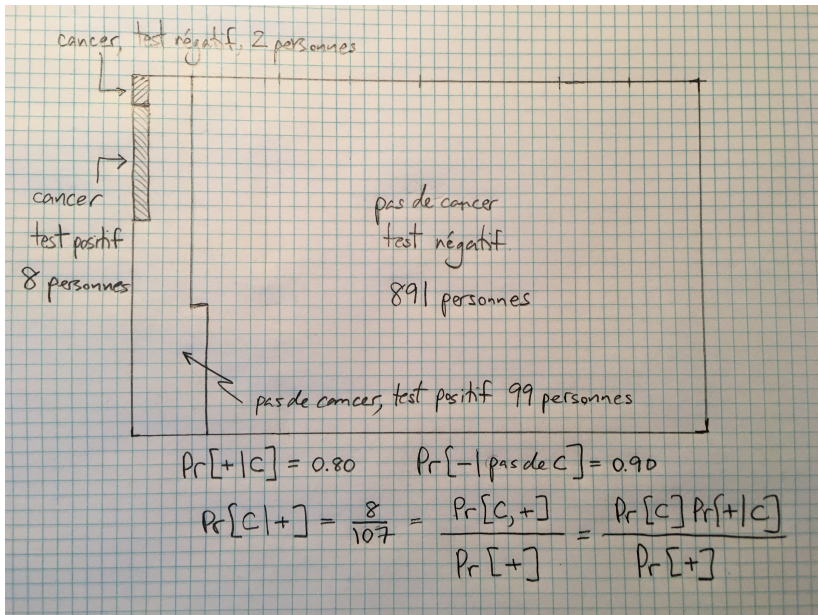 cancer, test négatif, 2 personnes
cancer
test positif
8 personnes
pas de cancer
test négatif.
891 personnes
pas de cancer, test positif 99 personnes
Pr[+|C] = 0.80 Pr[-|pas de C] = 0.90
Pr[C|+] = 8/107 = Pr[C,+]/Pr[+] = Pr[C] Pr[+|C]/Pr[+]